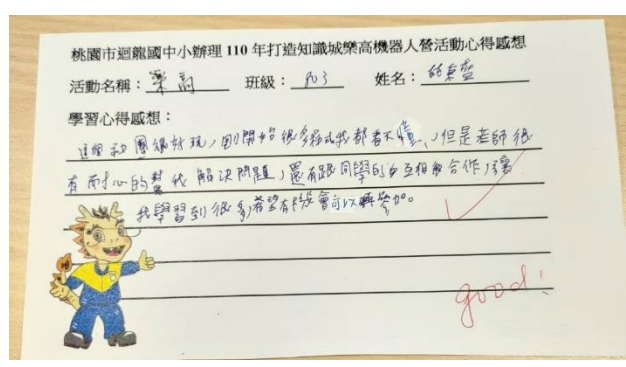 桃園市迴龍國中小辦理 110 年打造知識城樂高機器人營活動心得感想
活動名稱：樂高 班級：803 姓名：
學習心得感想：
這個初 很好玩，剛開始很多程式我都看不懂，但是老師很
有耐心的幫我解決問題，還有跟同學的互相 合作，讓
我學習到很多，希望有機會可以再參加。
good!